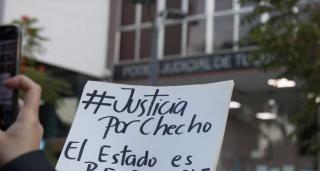 PODER JUDICIAL DE TU
#Justicia
por Checho
El Estado es
RESPONSABLE